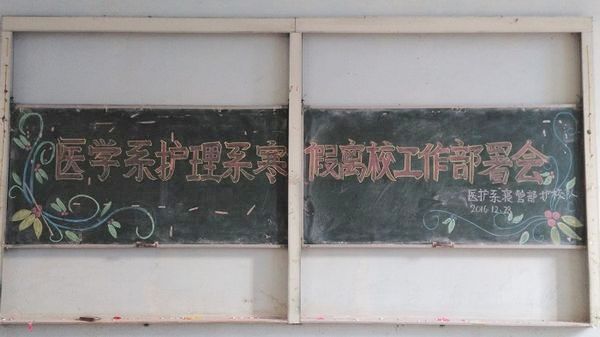 医学系护理系寒假离校工作部署会
医护系寝管部护校队
2016.12.28